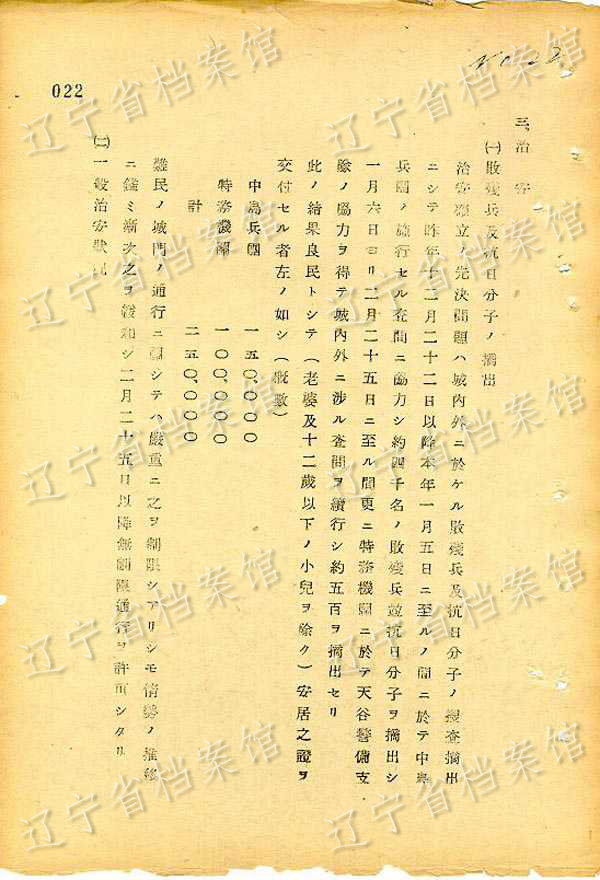 022
三、治安
(一)敗残兵及抗日分子ノ摘出
治安確立ノ先決問題ハ城内外ニ於ケル敗残兵及抗日分子ノ捜査摘出
ニシテ昨年十二月二十二日以降本年一月五日ニ至ルノ間ニ於テ中島
兵團ノ施行セル査問ニ協力シ約四千名ノ敗残兵竝抗日分子ヲ摘出シ
一月六日ヨリ二月二十五日ニ至ル間更ニ特務機關ニ於テ天谷警備支
隊ノ協力ヲ得テ城内外ニ渉ル査問ヲ續行シ約五百ヲ摘出セリ
此ノ結果良民トシテ(老婆及十二歲以下ノ小兒ヲ除ク)安居之證ヲ
交付セル者左ノ如シ(概數)
中島兵團 一五〇、〇〇〇
特務機關 一〇〇、〇〇〇
計 二五〇、〇〇〇
難民ノ城門ノ通行ニ關シテハ嚴重ニ之ヲ制限シアリシモ情勢ノ推移
ニ鑑ミ漸次之ヲ緩和シ二月二十五日以降無制限通行ヲ許可シタリ
(二)一般治安狀況
辽宁省档案馆
辽宁省档案馆
辽宁省档案馆
辽宁省档案馆
辽宁省档案馆
辽宁省档案馆
辽宁省档案馆
辽宁省档案馆